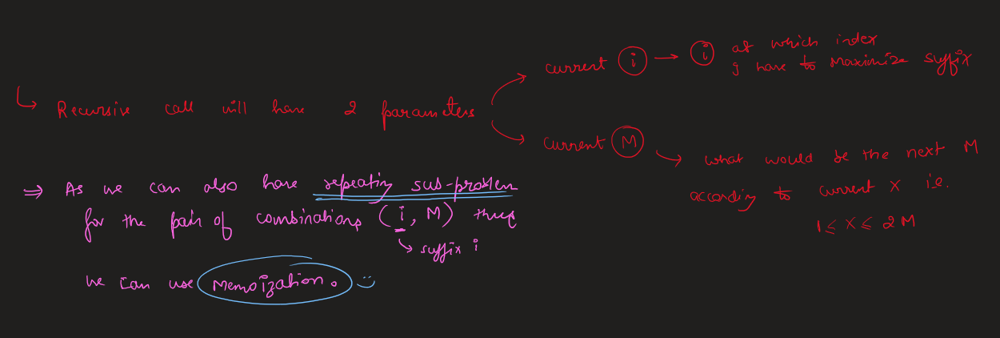 Recursive call will have 2 parameters
current i → i at which index
I have to maximize suffix
current M
what would be the next M
according to current X i.e.
1 ≤ X ≤ 2M
⇒ As we can also have repeating sub-problem
for the pair of combinations (i, M) thus
suffix i
we can use Memoization.